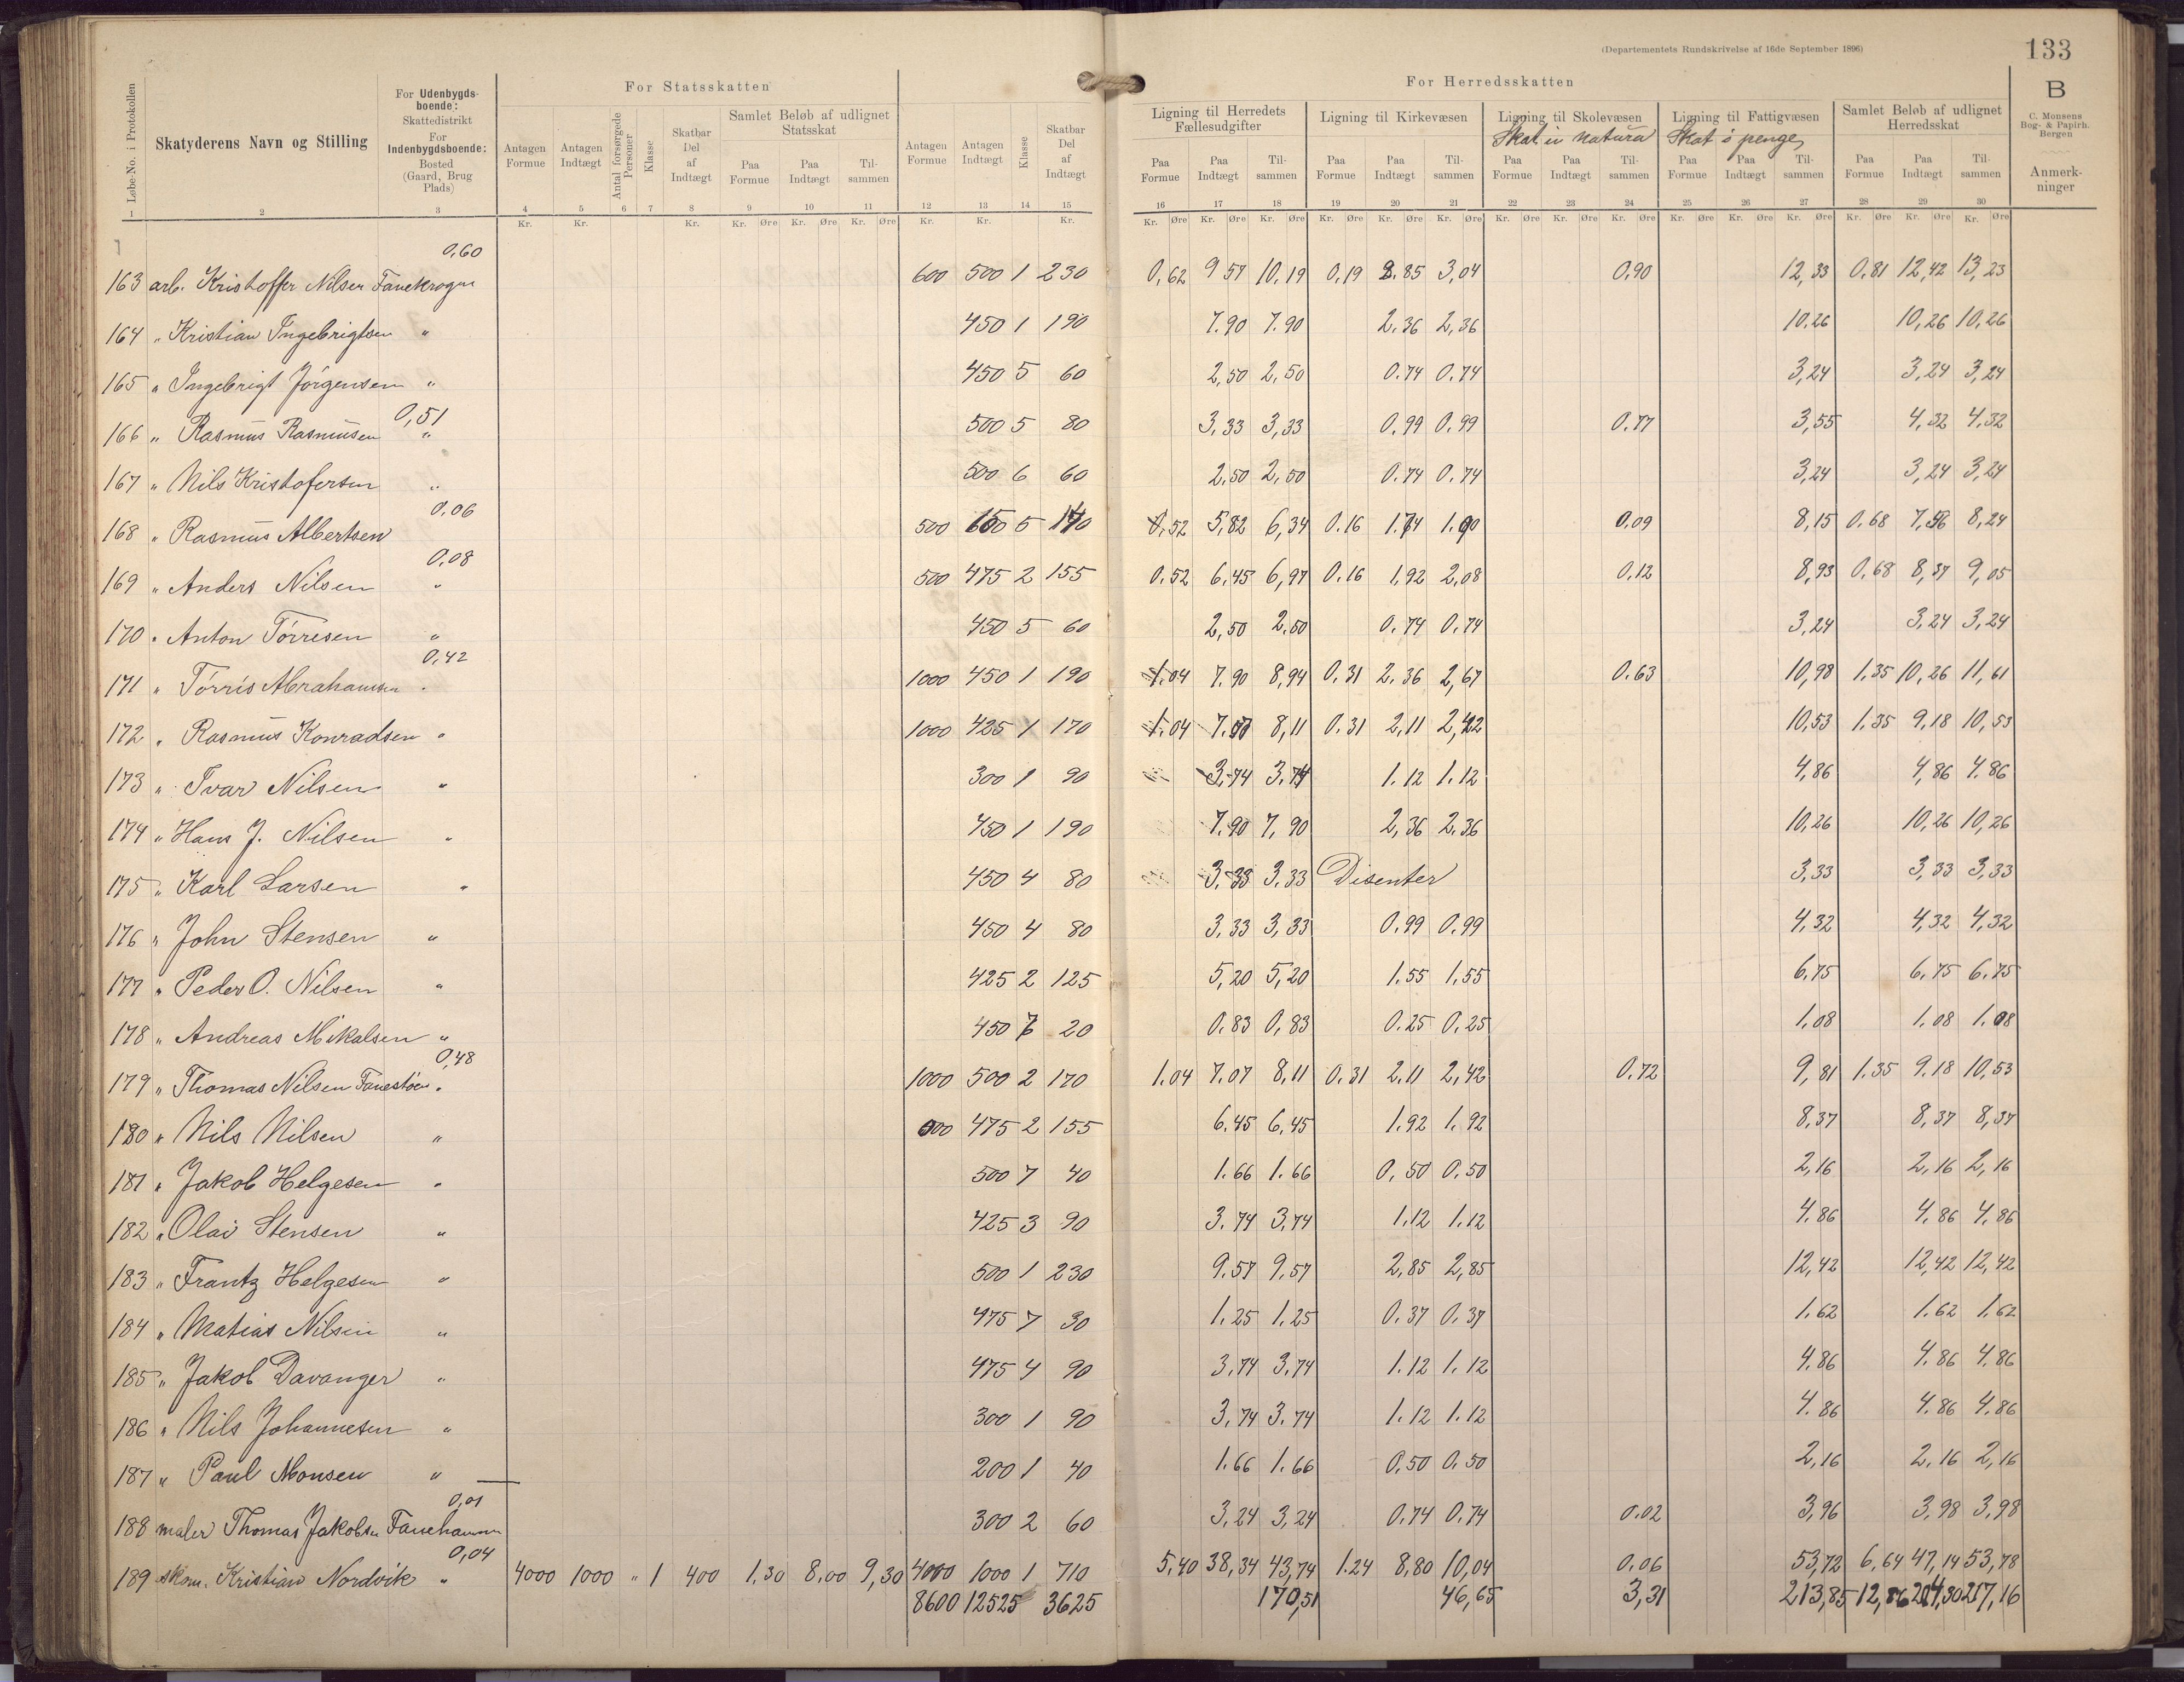 (Departementets Rundskrivelse af 16de September 1896)
133
For Statsskatten
For Herredsskatten
B
C. Monsens Bog- & Papirh. Bergen
Løbe-No. i Protokollen
Skatyderens Navn og Stilling
For Udenbygdsboende: Skattedistrikt For Indenbygdsboende: Bosted (Gaard, Brug Plads)
Antagen Formue
Antagen Indtægt
Antal forsørgede Personer
Klasse
Skatbar Del af Indtægt
Samlet Beløb af udlignet Statsskat
Paa Formue
Paa Indtægt
Tilsammen
Antagen Formue
Antagen Indtægt
Klasse
Skatbar Del af Indtægt
Ligning til Herredets Fællesudgifter
Paa Formue Paa Indtægt Tilsammen
Ligning til Kirkevæsen
Paa Formue Paa Indtægt Tilsammen
Ligning til Skolevæsen
Skat in natura
Paa Formue Paa Indtægt Tilsammen
Ligning til Fattigvæsen
Skat i penge
Paa Formue Paa Indtægt Tilsammen
Samlet Beløb af udlignet Herredsskat
Paa Formue Paa Indtægt Tilsammen
Anmerkninger
1 2 3 4 5 6 7 8 9 10 11 12 13 14 15 16 17 18 19 20 21 22 23 24 25 26 27 28 29 30
Kr. Kr. Kr. Kr. Øre Kr. Øre Kr. Øre Kr. Kr. Kr. Kr. Øre Kr. Øre Kr. Øre Kr. Øre Kr. Øre Kr. Øre Kr. Øre Kr. Øre Kr. Øre Kr. Øre Kr. Øre Kr. Øre Kr. Øre Kr. Øre Kr. Øre
0,60
163 arb. Kristoffer Nilsen Fanekrogen 600 500 1 230 0,62 9 57 10,19 0,19 2.85 3,04 0,90 12,33 0,81 12,42 13,23
164 " Kristian Ingebrigtsen " 450 1 190 7.90 7.90 2.36 2,36 10,26 10,26 10,26
165 " Ingebrigt Jörgensen " 450 5 60 2,50 2,50 0.74 0.74 3,24 3,24 3,24
0,51
166 " Rasmus Rasmusen " 500 5 80 3,33 3,33 0.99 0.99 0.77 3,55 4,32 4.32
167 " Nils Kristofersen " 500 6 60 2.50 2,50 0.74 0.74 3,24 3,24 3,24
0,06
168 " Rasmus Albertsen 500 5 140 0,52 5,82 6,34 0.16 1.74 1.90 0.09 8,15 0.68 7,56 8,24
0,08
169 " Anders Nilsen " 500 475 2 155 0.52 6,45 6,97 0.16 1,92 2,08 0.12 8,93 0,68 8,37 9,05
170 " Anton Törresen " 450 5 60 2,50 2.50 0.74 0.74 3,24 3,24 3,24
0,42
171 " Törris Abrahamsen " 1000 450 1 190 1.04 7.90 8,94 0.31 2.36 2,67 0.63 10,98 1.35 10,26 11,61
172 " Rasmus Konradsen " 1000 425 1 170 1.04 7.07 8,11 0.31 2,11 2,42 10,53 1.35 9.18 10,53
173 " Ivar Nilsen " 300 1 90 3,74 3.74 1.12 1.12 4,86 4,86 4.86
174 " Hans J. Nilsen " 450 1 190 7.90 7,90 2,36 2.36 10,26 10,26 10,26
175 " Karl Larsen " 450 4 80 3,33 3.33 Disenter 3,33 3,33 3,33
176 " John Stensen " 450 4 80 3,33 3,33 0.99 0.99 4,32 4,32 4,32
177 " Peder O. Nilsen " 425 2 125 5,20 5,20 1.55 1,55 6,75 6,75 6,75
178 " Andreas Mikalsen " 450 7 20 0.83 0,83 0.25 0,25 1,08 1.08 1.08
0,48
179 " Thomas Nilsen Fanestöen " 1000 500 2 170 1.04 7.07 8,11 0.31 2.11 2,42 0.72 9,81 1.35 9.18 10,53
180 " Nils Nilsen " 475 2 155 6.45 6,45 1.92 1,92 8,37 8,37 8,37
181 " Jakob Helgesen " 500 7 40 1.66 1.66 0,50 0,50 2,16 2,16 2,16
182 " Olai Stensen " 425 3 90 3.74 3,74 1,12 1.12 4.86 4.86 4,86
183 " Frantz Helgesen " 500 1 230 9.57 9,57 2,85 2,85 12,42 12,42 12,42
184 " Matias Nilsen " 475 7 30 1,25 1,25 0.37 0.37 1.62 1.62 1.62
185 " Jakob Davanger " 475 4 90 3,74 3.74 1.12 1.12 4.86 4.86 4.86
186 " Nils Johannesen " 300 1 90 3,74 3.74 1.12 1.12 4.86 4.86 4.86
187 " Paul Monsen " 200 1 40 1.66 1.66 0,50 0.50 2,16 2.16 2,16
0,01
188 maler Thomas Jakobsen Fanehamn 300 2 60 3,24 3,24 0.74 0.74 0.02 3,96 3,98 3,98
0,04
189 skom. Kristian Nordvik " 4000 1000 " 1 400 1.30 8.00 9,30 4000 1000 1 710 5,40 38,34 43,74 1.24 8,80 10,04 0.06 53,72 6,64 47,14 53,78
8600 12525 3625 170,51 46,65 3,31 213,85 12,86 204,30 217,16